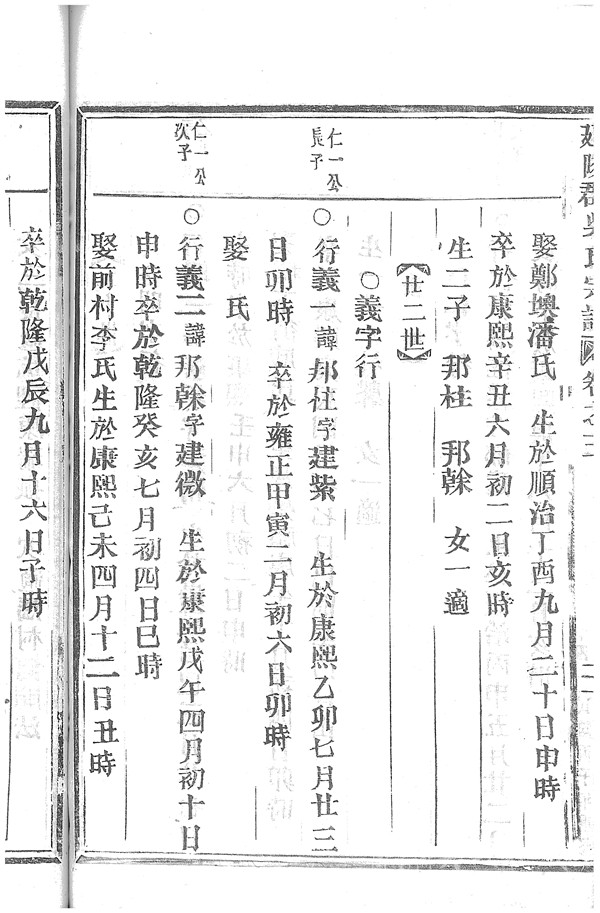 延陵郡吳氏宗譜 卷之三
娶鄭墺潘氏 生於順治丁酉九月二十日申時
卒於康熙辛丑六月初二日亥時
生二子 邦柱 邦榦 女一適
【廿二世】
○義字行
仁一公
長子
○行義一諱邦柱字建紫 生於康熙乙卯七月廿三
日卯時 卒於雍正甲寅二月初六日卯時
娶 氏
仁一公
次子
○行義二諱邦榦字建微 生於康熙戊午四月初十日
申時卒於乾隆癸亥七月初四日巳時
娶前村李氏生於康熙己未四月十二日丑時
卒於乾隆戊辰九月十六日子時